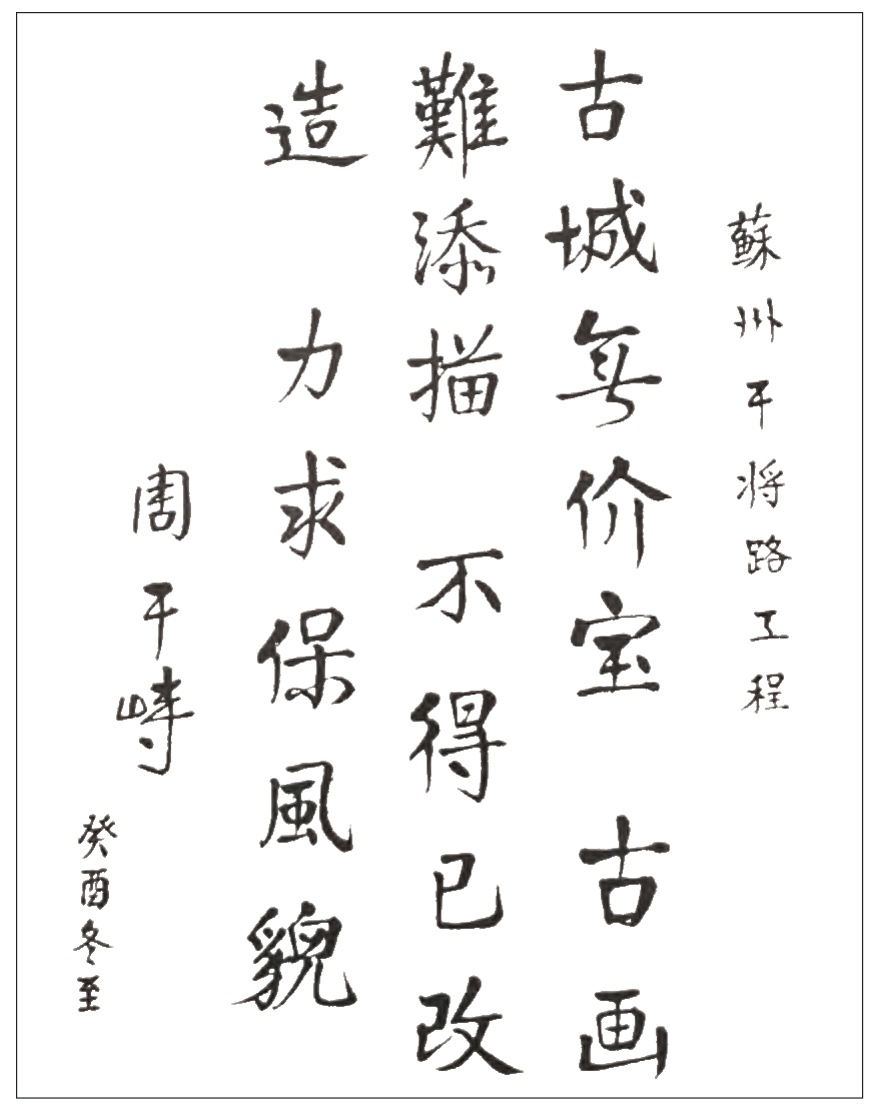 蘇州干将路工程
古城無价宝 古画
難添描 不得已改
造 力求保風貌
周干峙
癸酉冬至